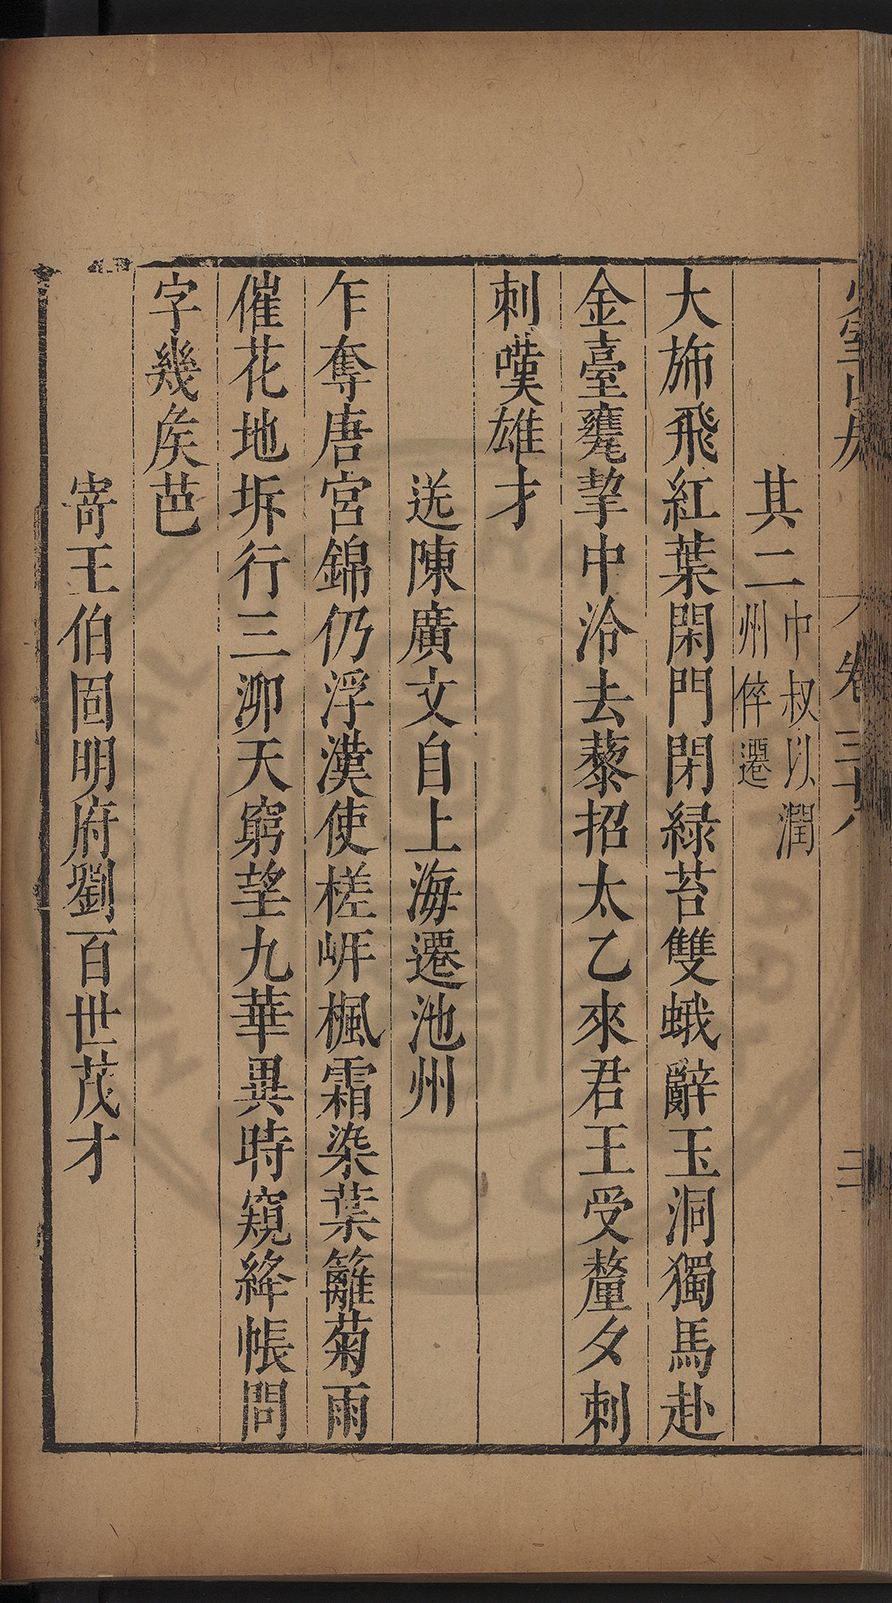 少室山房
卷三十八
三
其二
中叔以潤
州倅遷
大斾飛紅葉閑門閉緑苔雙蛾辭玉洞獨馬赴
金臺甕挈中泠去藜招太乙來君王受釐夕刺
刺嘆雄才
送陳廣文自上海遷池州
乍奪唐宮錦仍浮漢使槎岸楓霜染葉籬菊雨
催花地坼行三泖天窮望九華異時窺絳帳問
字幾矦芭
寄王伯固明府劉百世茂才